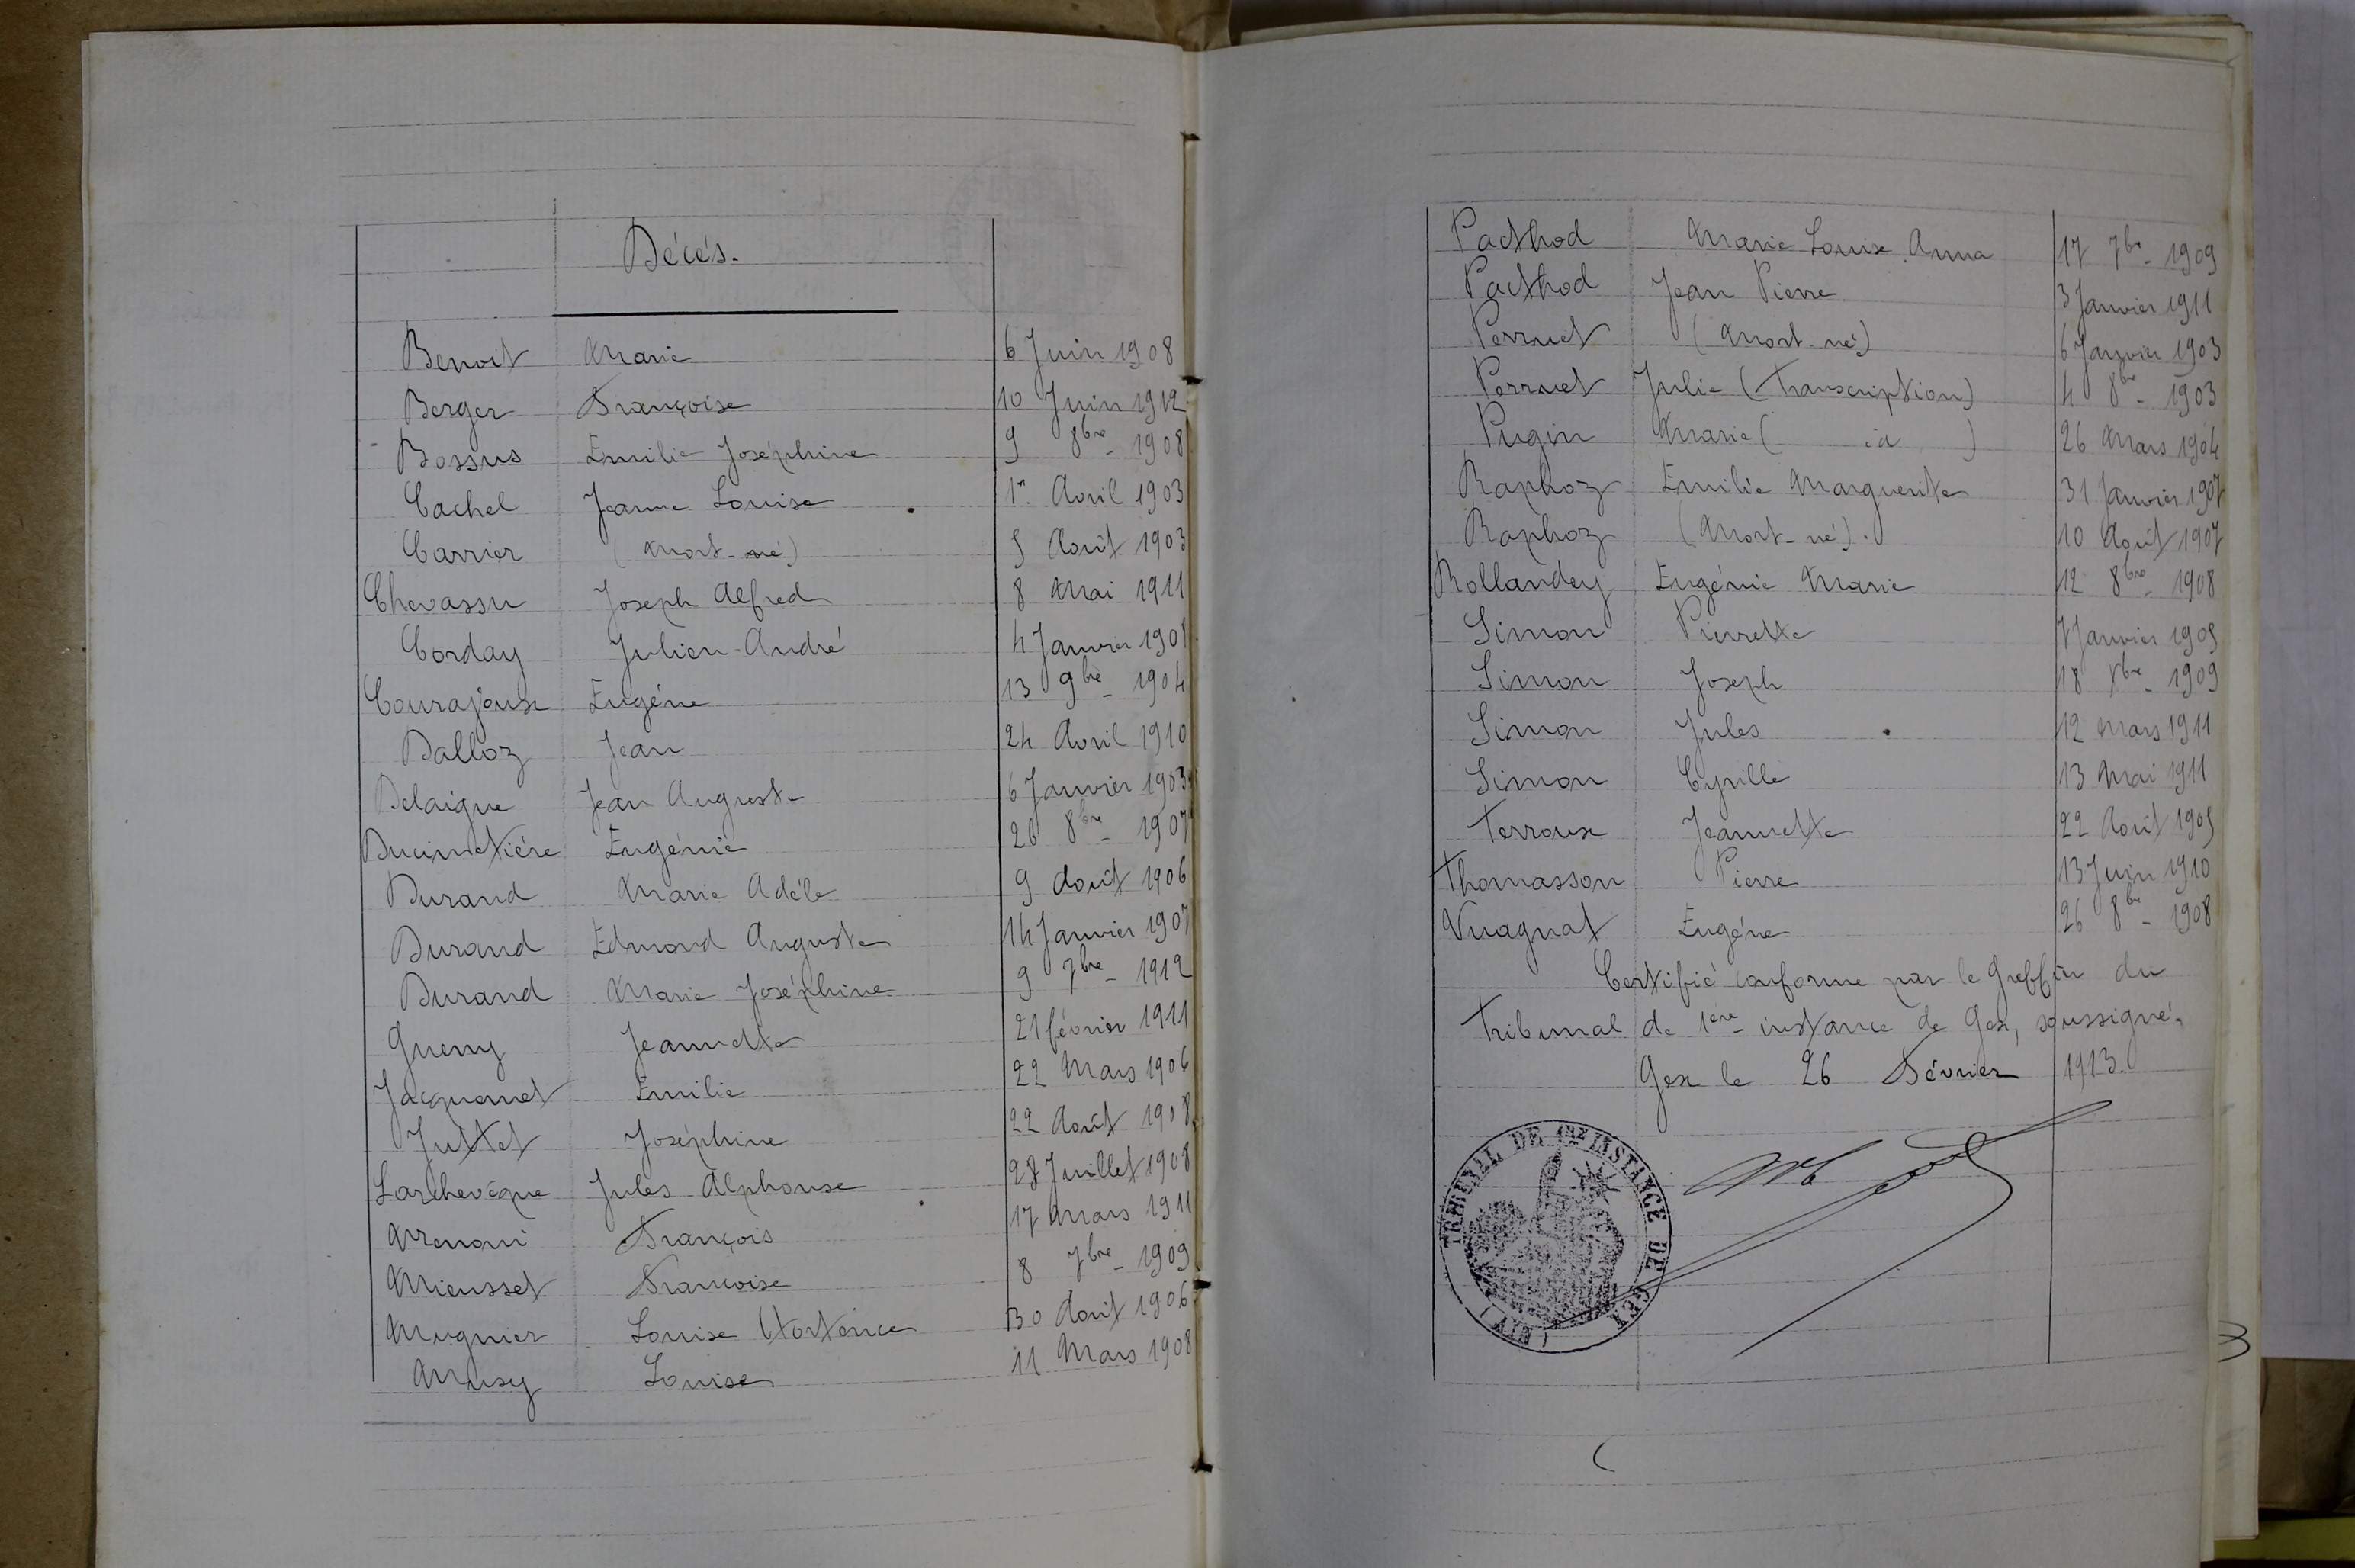 Décés.
Benoit Marie 6 Juin 1908
Berger Françoise 10 Juin 1912
Bossus Emilie Joséphine 9 8bre 1908
Cachel Jeanne Louise 1er Avril 1903
Carrier (Mort-né) 5 Août 1903
Chevassu Joseph Alfred 8 Mai 1911
Corday Julien André 4 Janvier
Courajoux Eugéne 13 9bre 1904
Dalloz Jean 24 Avril 1910
Delaigue Jean Auguste 6 Janvier 1903
Ducimetiére Eugénie 26 8bre 1907
Durand Marie Adéle 9 Août 1906
Durand Edmond Auguste 14 Janvier 1907
Durand Marie Joséphine 9 7bre 1912
Jeannette 21 février 1911
Jacquemet Emilie 22 Mars 1906
Juttet Joséphine 22 Août 1908
Larchevêque Jules Alphonse 28 Juillet 1908
François 17 Mars 1911
Mieusset Francoise 8 7bre 1909
Mugnier Louise Hortence 30 Août 1906
Musy Louise 11 Mars 1908
Pacthod Marie Louise Anna 17 7bre 1909
Pacthod Jean Pierre 3 Janvier 1911
Perruet (Mort-né) 6 Janvier 1903
Perruet Julie (Transcription) 4 8bre 1903
Pugin Marie ( id ) 26 Mars 1904
Raphoz Emilie Marguerite 31 Janvier 1907
Raphoz (Mort-né). 10 Août 1907
Rollandey Eugénie Marie 12 8bre 1908
Simon Pierrette 7 Janvier 1905
Simon Joseph 18 Xbre 1909
Simon Jules 12 Mars 1911
Simon Cyrille 13 Mai 1911
Terroux Jeannette 22 Août 1905
Thomasson Pierre 13 Juin 1910
Vuagnat Eugéne 26 8bre 1908
Certifié conforme par le Greffier du
Tribunal de 1ere instance de Gex, soussigné.
Gex le 26 Février 1913.
TRIBUNAL DE 1RE INSTANCE DE GEX (AIN)